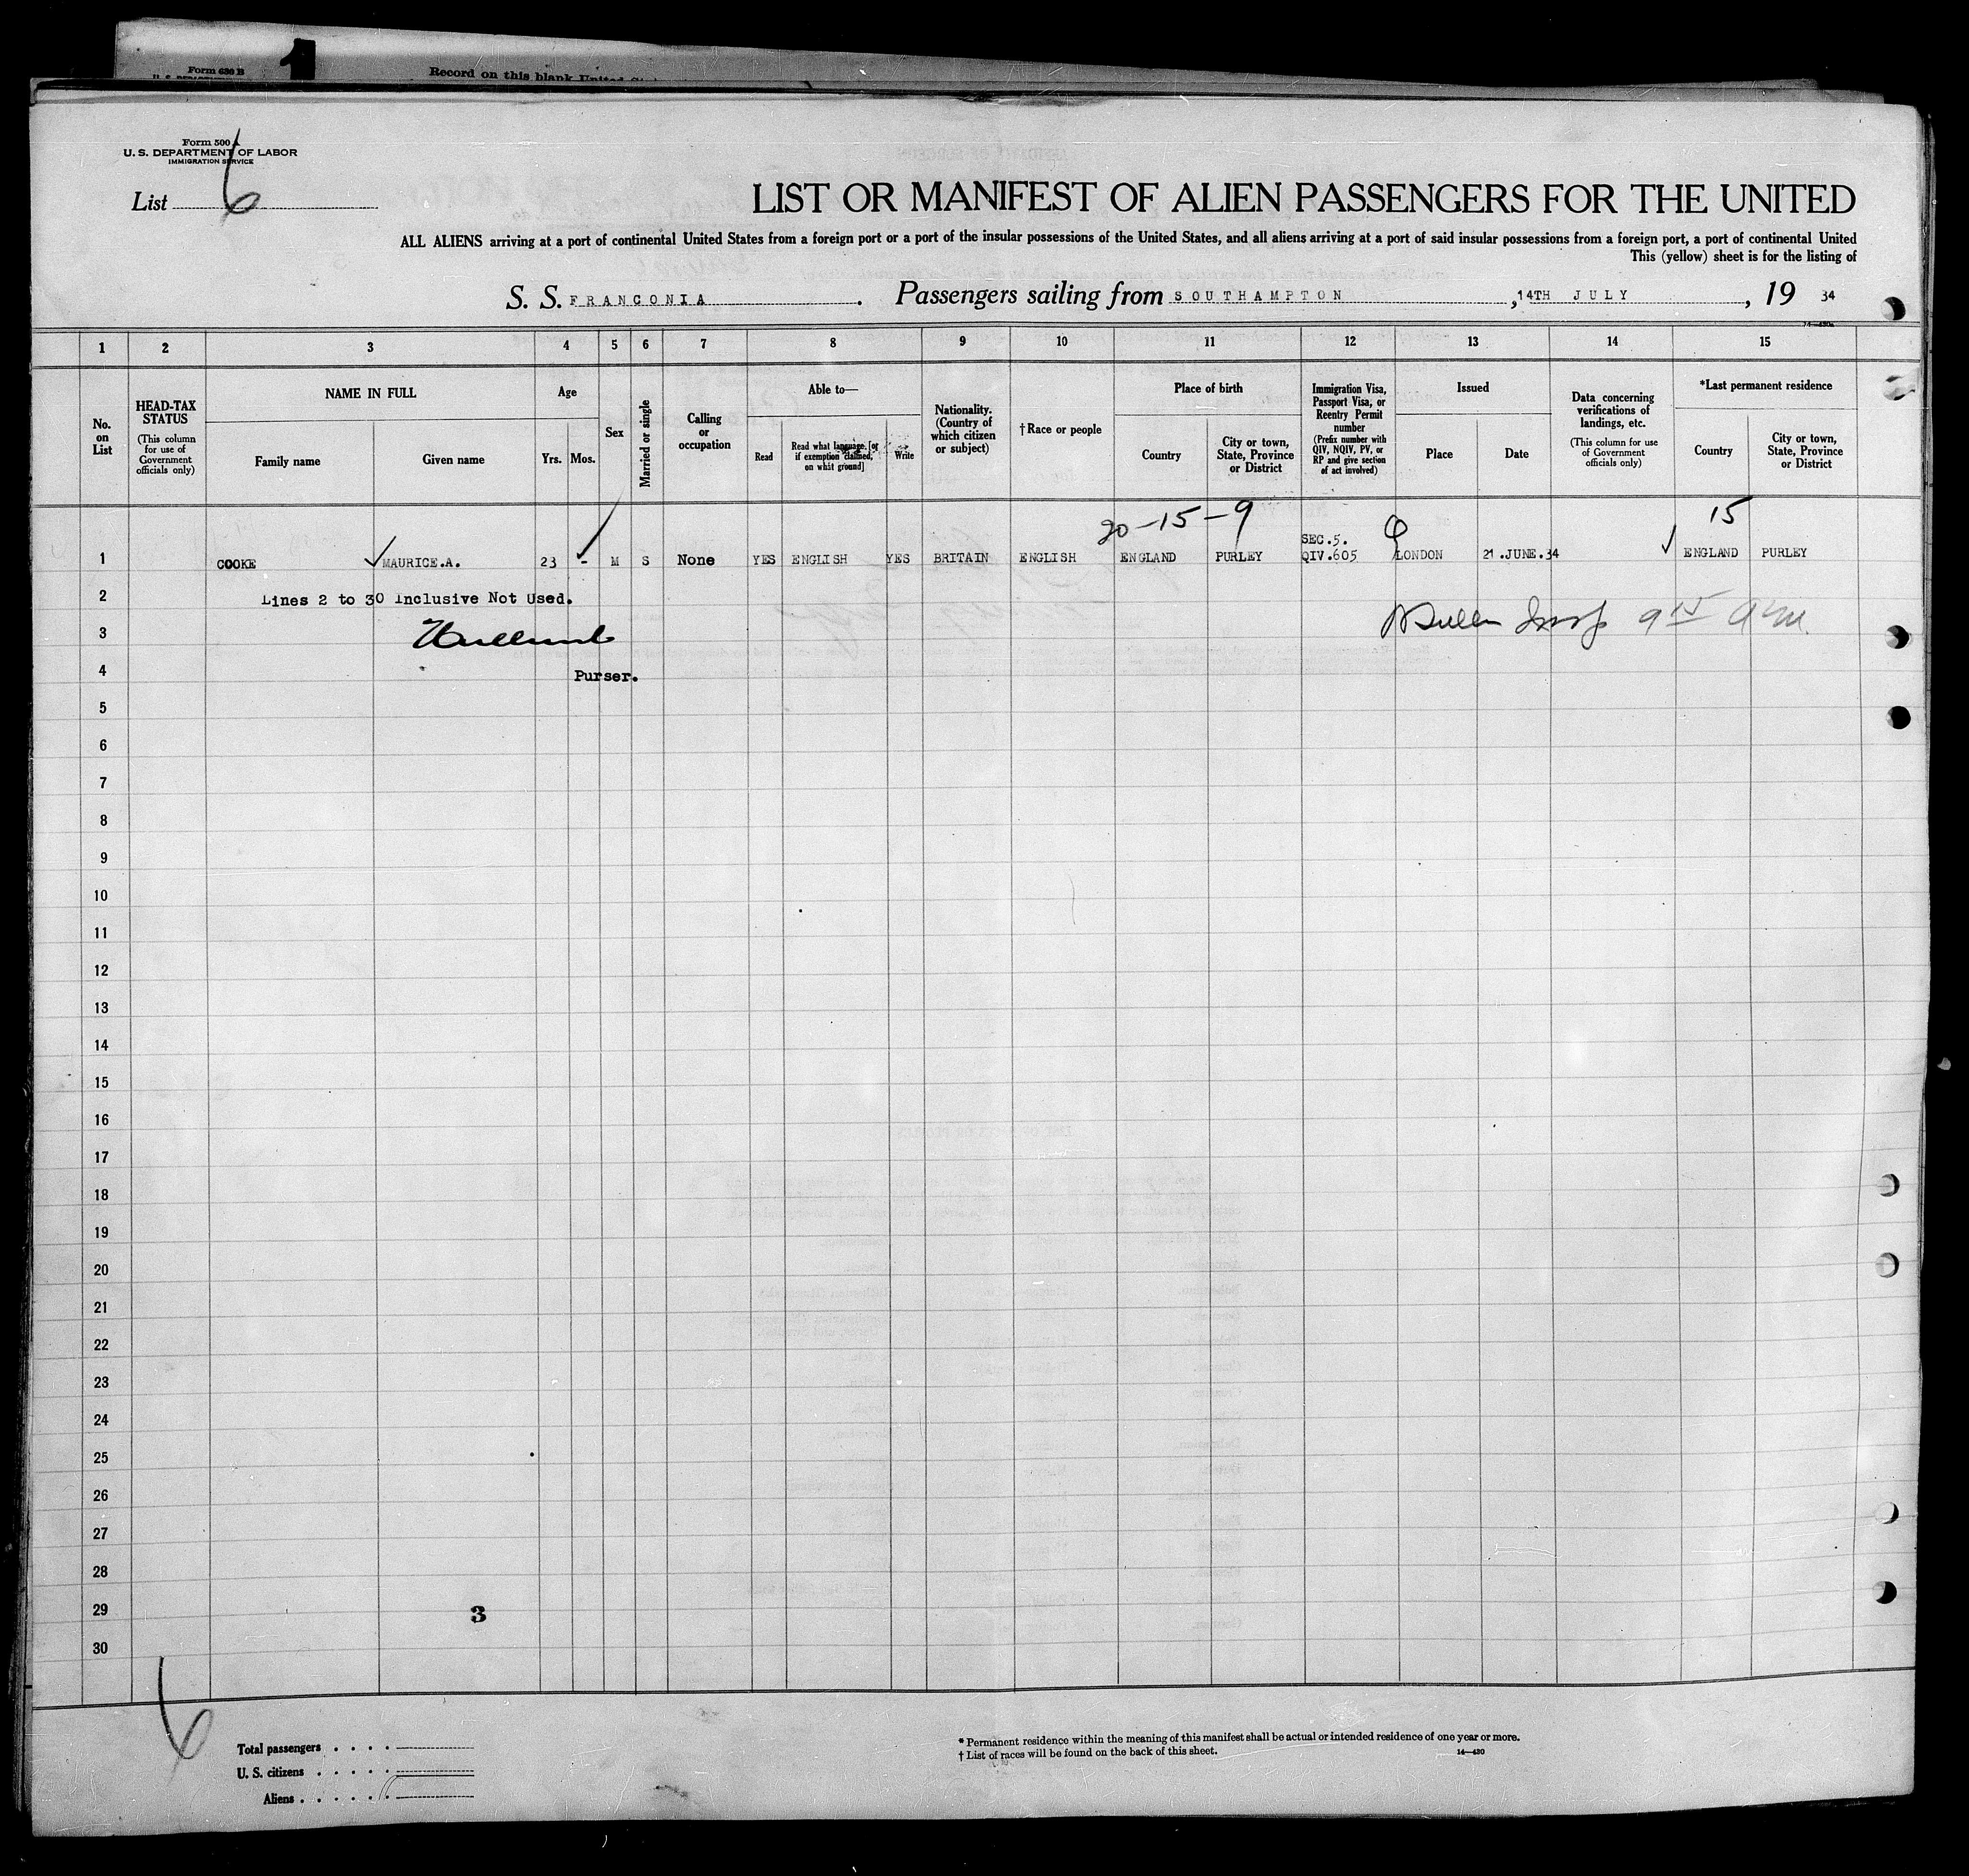 Form 630 B
Record on this blank United
Form 500 A
U. S. DEPARTMENT OF LABOR
IMMIGRATION SERVICE
List 6
LIST OR MANIFEST OF ALIEN PASSENGERS FOR THE UNITED
ALL ALIENS arriving at a port of continental United States from a foreign port or a port of the insular possessions of the United States, and all aliens arriving at a port of said insular possessions from a foreign port, a port of continental United
This (yellow) sheet is for the listing of
S. S. FRANCONIA. Passengers sailing from SOUTHAMPTON, 14TH JULY, 19 34
1 2 3 4 5 6 7 8 9 10 11 12 13 14 15
No. on List
HEAD-TAX STATUS (This column for use of Government officials only)
NAME IN FULL
Family name Given name
Age
Yrs. Mos.
Sex
Married or single
Calling or occupation
Able to—
Read Read what language [or if exemption claimed, on what ground] Write
Nationality. (Country of which citizen or subject)
†Race or people
Place of birth
Country City or town, State, Province or District
Immigration Visa, Passport Visa, or Reentry Permit number (Prefix number with QIV, NQIV, PV, or RP and give section of act involved)
Issued
Place Date
Data concerning verifications of landings, etc. (This column for use of Government officials only)
*Last permanent residence
Country City or town, State, Province or District
20-15-9 15
SEC.5.
1 COOKE MAURICE.A. 23 - M S None YES ENGLISH YES BRITAIN ENGLISH ENGLAND PURLEY QIV.605 LONDON 21.JUNE.34 ENGLAND PURLEY
2 Lines 2 to 30 Inclusive Not Used.
3
4 Purser.
5
6
7
8
9
10
11
12
13
14
15
16
17
18
19
20
21
22
23
24
25
26
27
28
29 3
30
6
Total passengers
U. S. citizens
Aliens
* Permanent residence within the meaning of this manifest shall be actual or intended residence of one year or more.
† List of races will be found on the back of this sheet. 14—480